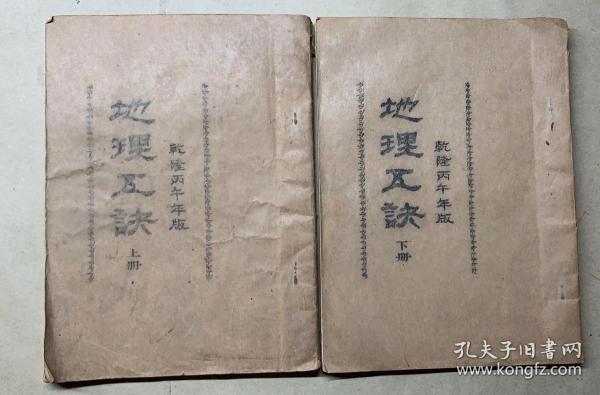 地理五訣
乾隆丙午年版
上册
地理五訣
乾隆丙午年版
下册
孔夫子旧书网
www.kongfz.com